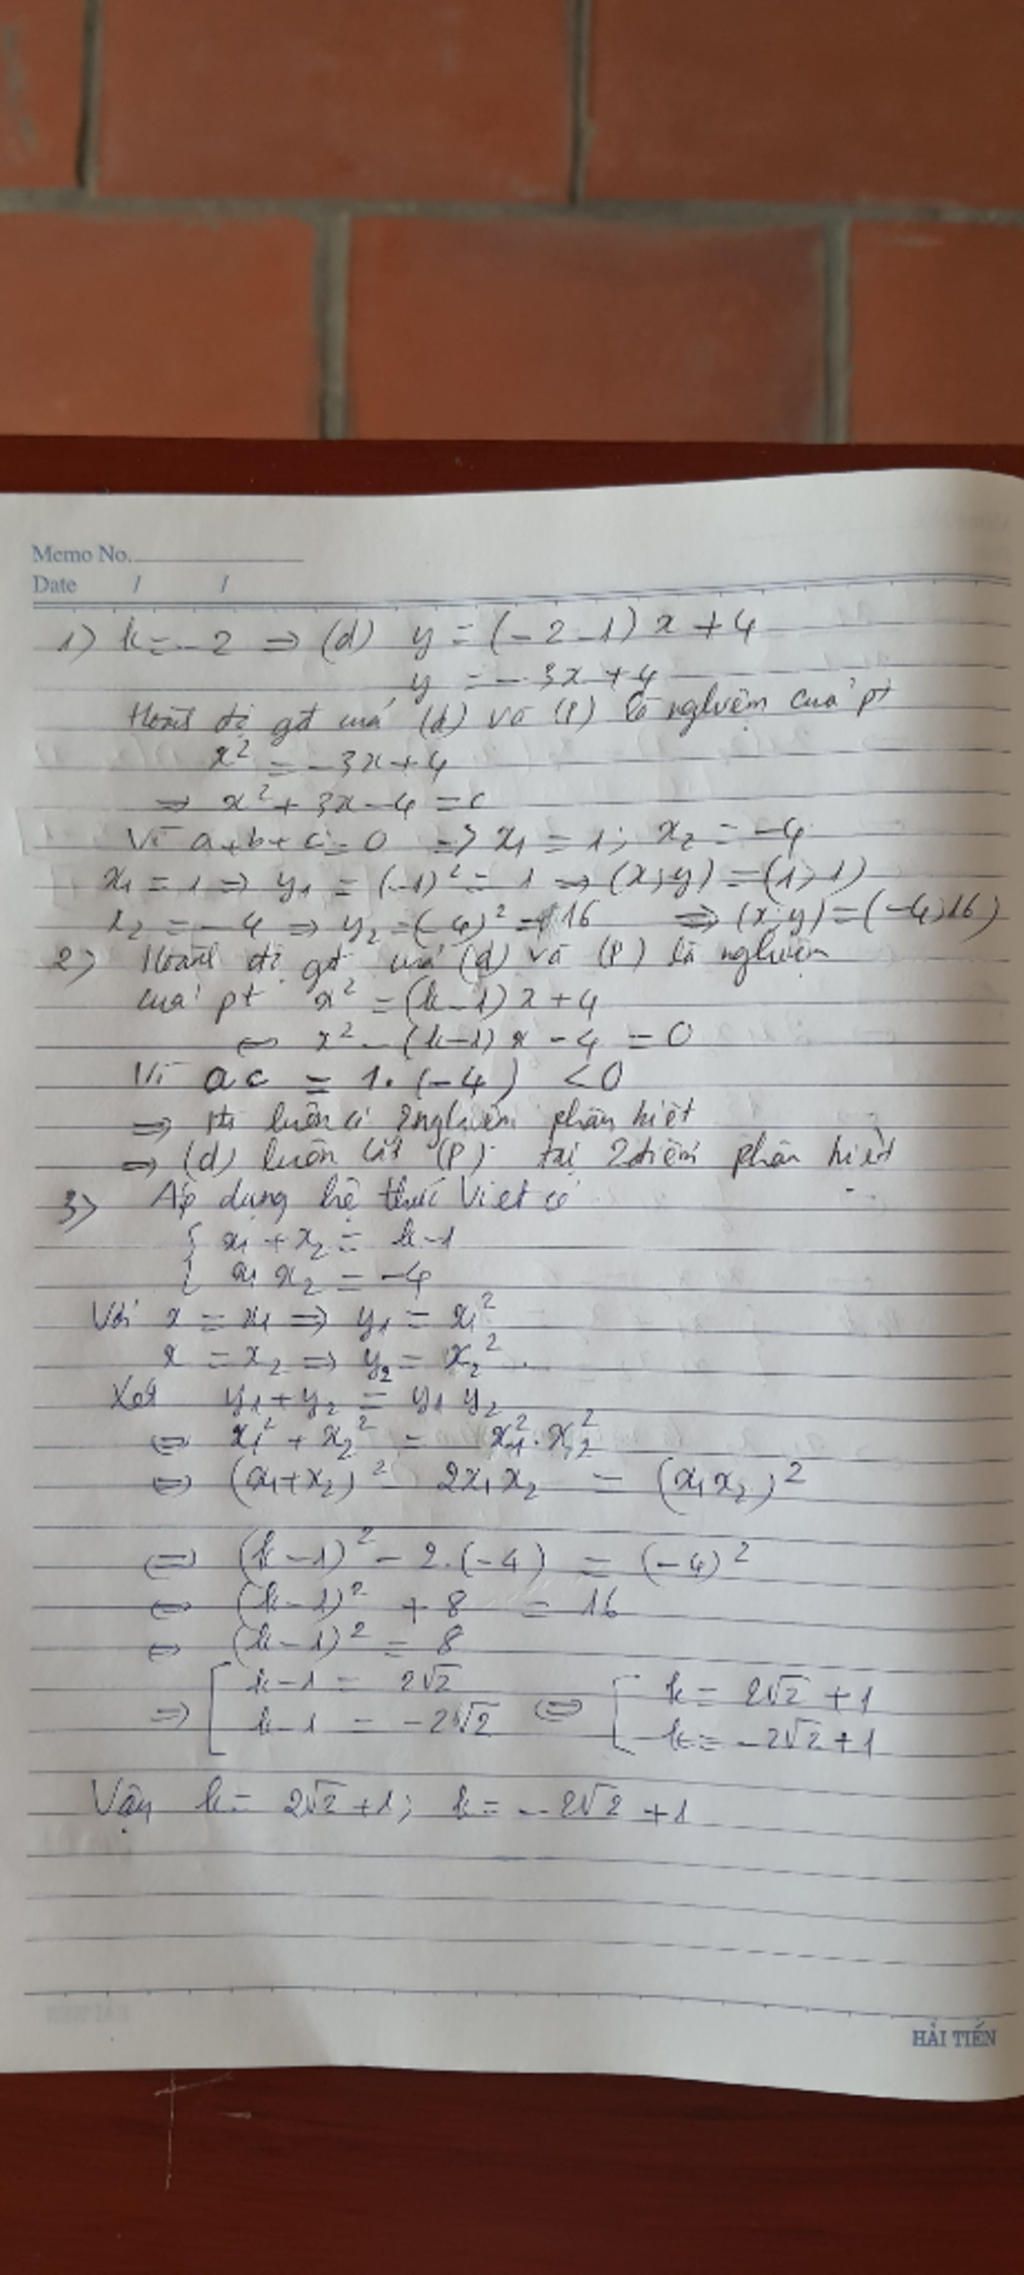 Memo No.
Date / /
1) k = -2 ⇒ (d) y = (-2-1)x + 4
y = -3x + 4
Hoành độ gđ của (d) và (P) là nghiệm của pt
x² = -3x + 4
⇒ x² + 3x - 4 = 0
Vì a+b+c = 0 ⇒ x₁ = 1; x₂ = -4
x₁ = 1 ⇒ y₁ = (-1)² = 1 ⇒ (x;y) = (1;1)
x₂ = -4 ⇒ y₂ = (-4)² = 16 ⇒ (x;y) = (-4;16)
2) Hoành độ gđ của (d) và (P) là nghiệm
của pt x² = (k-1)x + 4
⇔ x² - (k-1)x - 4 = 0
Vì ac = 1.(-4) < 0
⇒ pt luôn có 2 nghiệm phân biệt
⇒ (d) luôn cắt (P) tại 2 điểm phân biệt
3) Áp dụng hệ thức Viet có
{ x₁ + x₂ = k-1
x₁ x₂ = -4
Với x = x₁ ⇒ y₁ = x₁²
x = x₂ ⇒ y₂ = x₂²
Xét y₁ + y₂ = y₁ y₂
⇔ x₁² + x₂² = x₁² . x₂²
⇔ (x₁+x₂)² - 2x₁x₂ = (x₁x₂)²
⇔ (k-1)² - 2.(-4) = (-4)²
⇔ (k-1)² + 8 = 16
⇔ (k-1)² = 8
⇒ [ k-1 = 2√2 ⇔ [ k = 2√2 + 1
k-1 = -2√2 k = -2√2 + 1
Vậy k = 2√2 + 1; k = -2√2 + 1
HẢI TIẾN